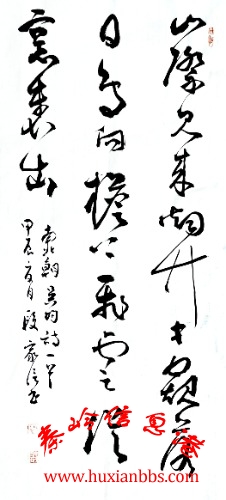 山際見來烟竹中窺落
日鳥向檐上飛雲從
窗裏出
南朝吴均詩一首
甲辰夏月段家
www.huxianbbs.com